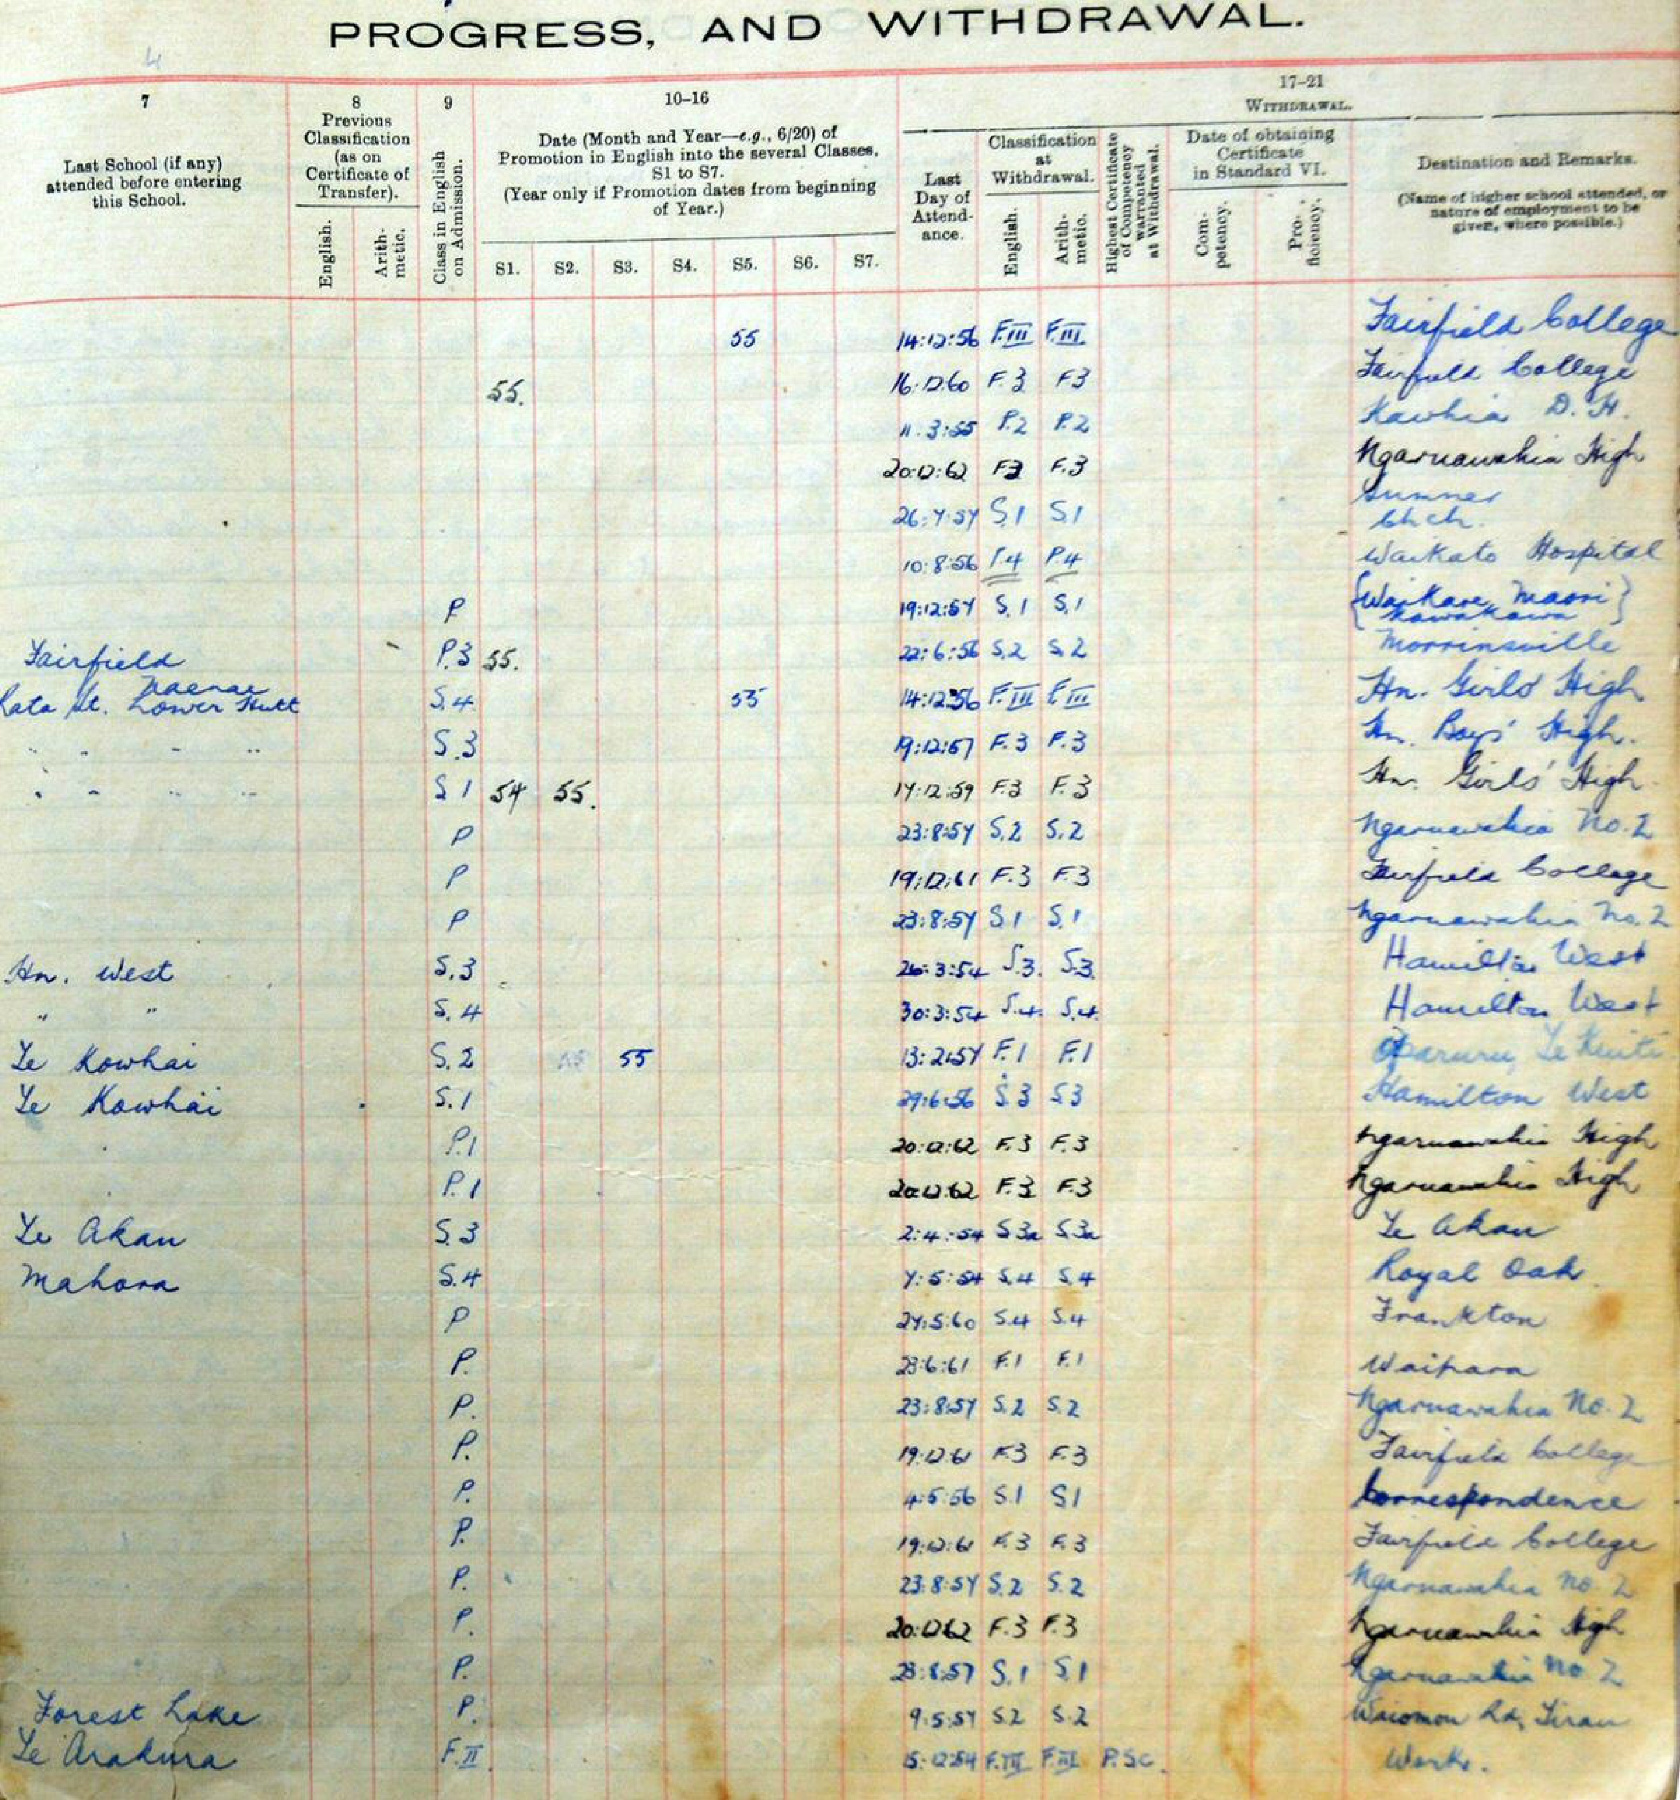 PROGRESS, AND WITHDRAWAL.
4
7
Last School (if any)
attended before entering
this School.
8
Previous
Classification
(as on
Certificate of
Transfer).
English.
Arith-
metic.
9
Class in English
on Admission.
10–16
Date (Month and Year—e.g., 6/20) of
Promotion in English into the several Classes,
S1 to S7.
(Year only if Promotion dates from beginning
of Year.)
S1. S2. S3. S4. S5. S6. S7.
17–21
WITHDRAWAL.
Last
Day of
Attend-
ance.
Classification
at
Withdrawal.
English.
Arith-
metic.
Highest Certificate
of Competency
warranted
at Withdrawal.
Date of obtaining
Certificate
in Standard VI.
Com-
petency.
Pro-
ficiency.
Destination and Remarks.
(Name of higher school attended, or
nature of employment to be
given, where possible.)
55 14:12:56 F.III F.III Fairfield College
55. 16:12:60 F.3 F3 Fairfield College
11.3:55 P.2 P.2 Kawhia D.H.
20:12:62 F3 F.3 Ngaruawahia High
26:7:57 S.1 S.1 Sumner
Chch.
10:8:56 P.4 P.4 Waikato Hospital
P 19:12:57 S.1 S.1 {Waikare Maori}
Kawakawa
Fairfield P.3 55. 22:6:56 S.2 S.2 Morrinsville
Naenae
Rata St. Lower Hutt S.4 55 14:12:56 F.III F.III Hn. Girls' High
" " " " S.3 19:12:57 F.3 F.3 Hn. Boys' High.
" " " " S1 54 55. 17:12:59 F.3 F.3 Hn. Girls' High
P 23:8:57 S.2 S.2 Ngaruawahia No.2
P 19:12:61 F.3 F.3 Fairfield College
P 23:8:57 S.1 S.1 Ngaruawahia No.2
Hn. West S.3 26:3:54 S.3. S.3. Hamilton West
" " S.4 30:3:54 S.4. S.4. Hamilton West
Te Kowhai S.2 55 13:2:57 F.1 F.1 Te Kuiti
Te Kowhai S.1 29:6:56 S.3 S.3 Hamilton West
P.1 20:12:62 F.3 F.3 Ngaruawahia High
P.1 20:12:62 F.3 F.3 Ngaruawahia High
Te Akau S.3 2:4:54 S.3a S.3a Te Akau
Mahora S.4 7:5:54 S.4 S.4 Royal Oak
P 27:5:60 S.4 S.4 Frankton
P. 23:6:61 F.1 F.1 Waipara
P. 23:8:57 S.2 S.2 Ngaruawahia No. 2
P. 19:12:61 F.3 F.3 Fairfield College
P. 4:5:56 S.1 S1 Correspondence
P. 19:12:61 F.3 F.3 Fairfield College
P. 23:8:57 S.2 S.2 Ngaruawahia No. 2
P. 20:12:62 F.3 F.3 Ngaruawahia High
P. 23:8:57 S.1 S.1 Ngaruawahia No 2
Forest Lake P. 9:5:57 S.2 S.2 Waiomou Rd, Tirau
Te Arakura F.II. 15:12:54 F.III F.III P.Sc. Work.